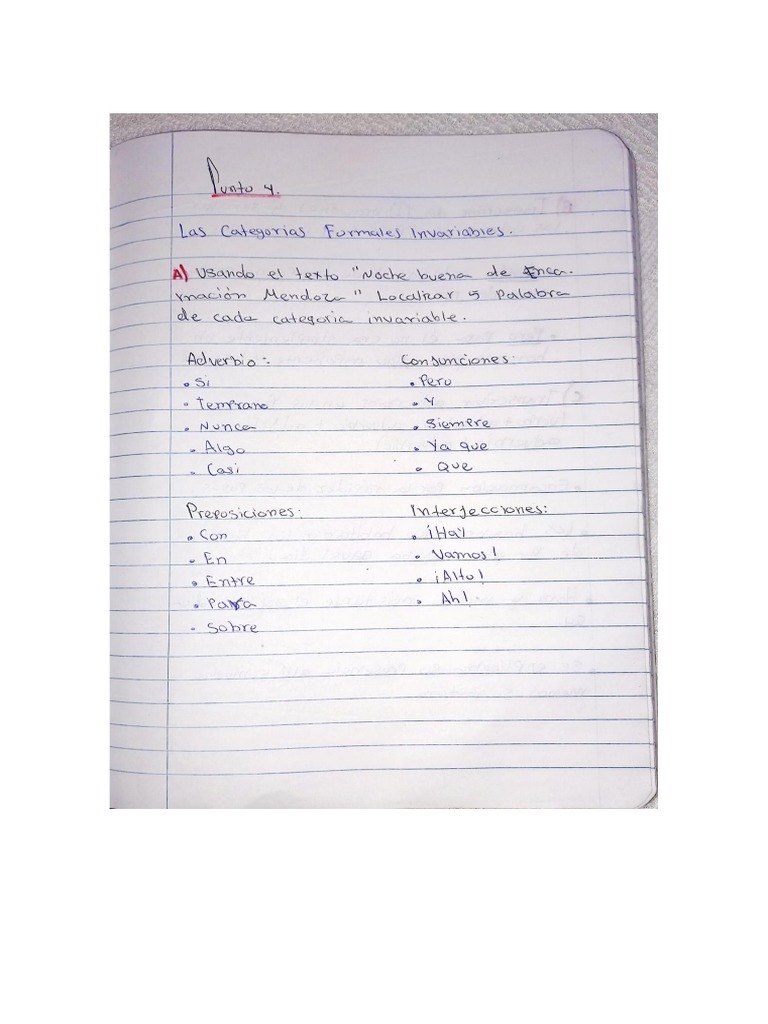 Punto 4.
Las Categorias Formales Invariables.
A) Usando el texto "Noche buena de Enca-
rnación Mendoza" Localizar 5 Palabra
de cada categoria invariable.
Adverbio: Consunciones:
• Si • Pero
• Temprano • Y
• Nunca • Siempre
• Algo • Ya que
• Casi • Que
Preposiciones: Interjecciones:
• Con • ¡Hay
• En • Vamos!
• Entre • ¡Alto!
• Para • Ah!.
• Sobre